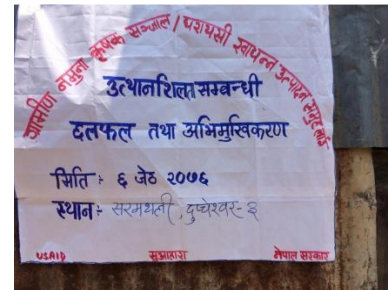 ग्रामीण नमुना कृषक सञ्जाल / घरायसी खाद्यान्न उत्पादन समुह लाई
उत्थानशिलता सम्बन्धी
छलफल तथा अभिमुखिकरण
मिति :- ६ जेठ २०७६
स्थान :- सरमथली, दुप्चेश्वर-३
USAID सुआहारा नेपाल सरकार